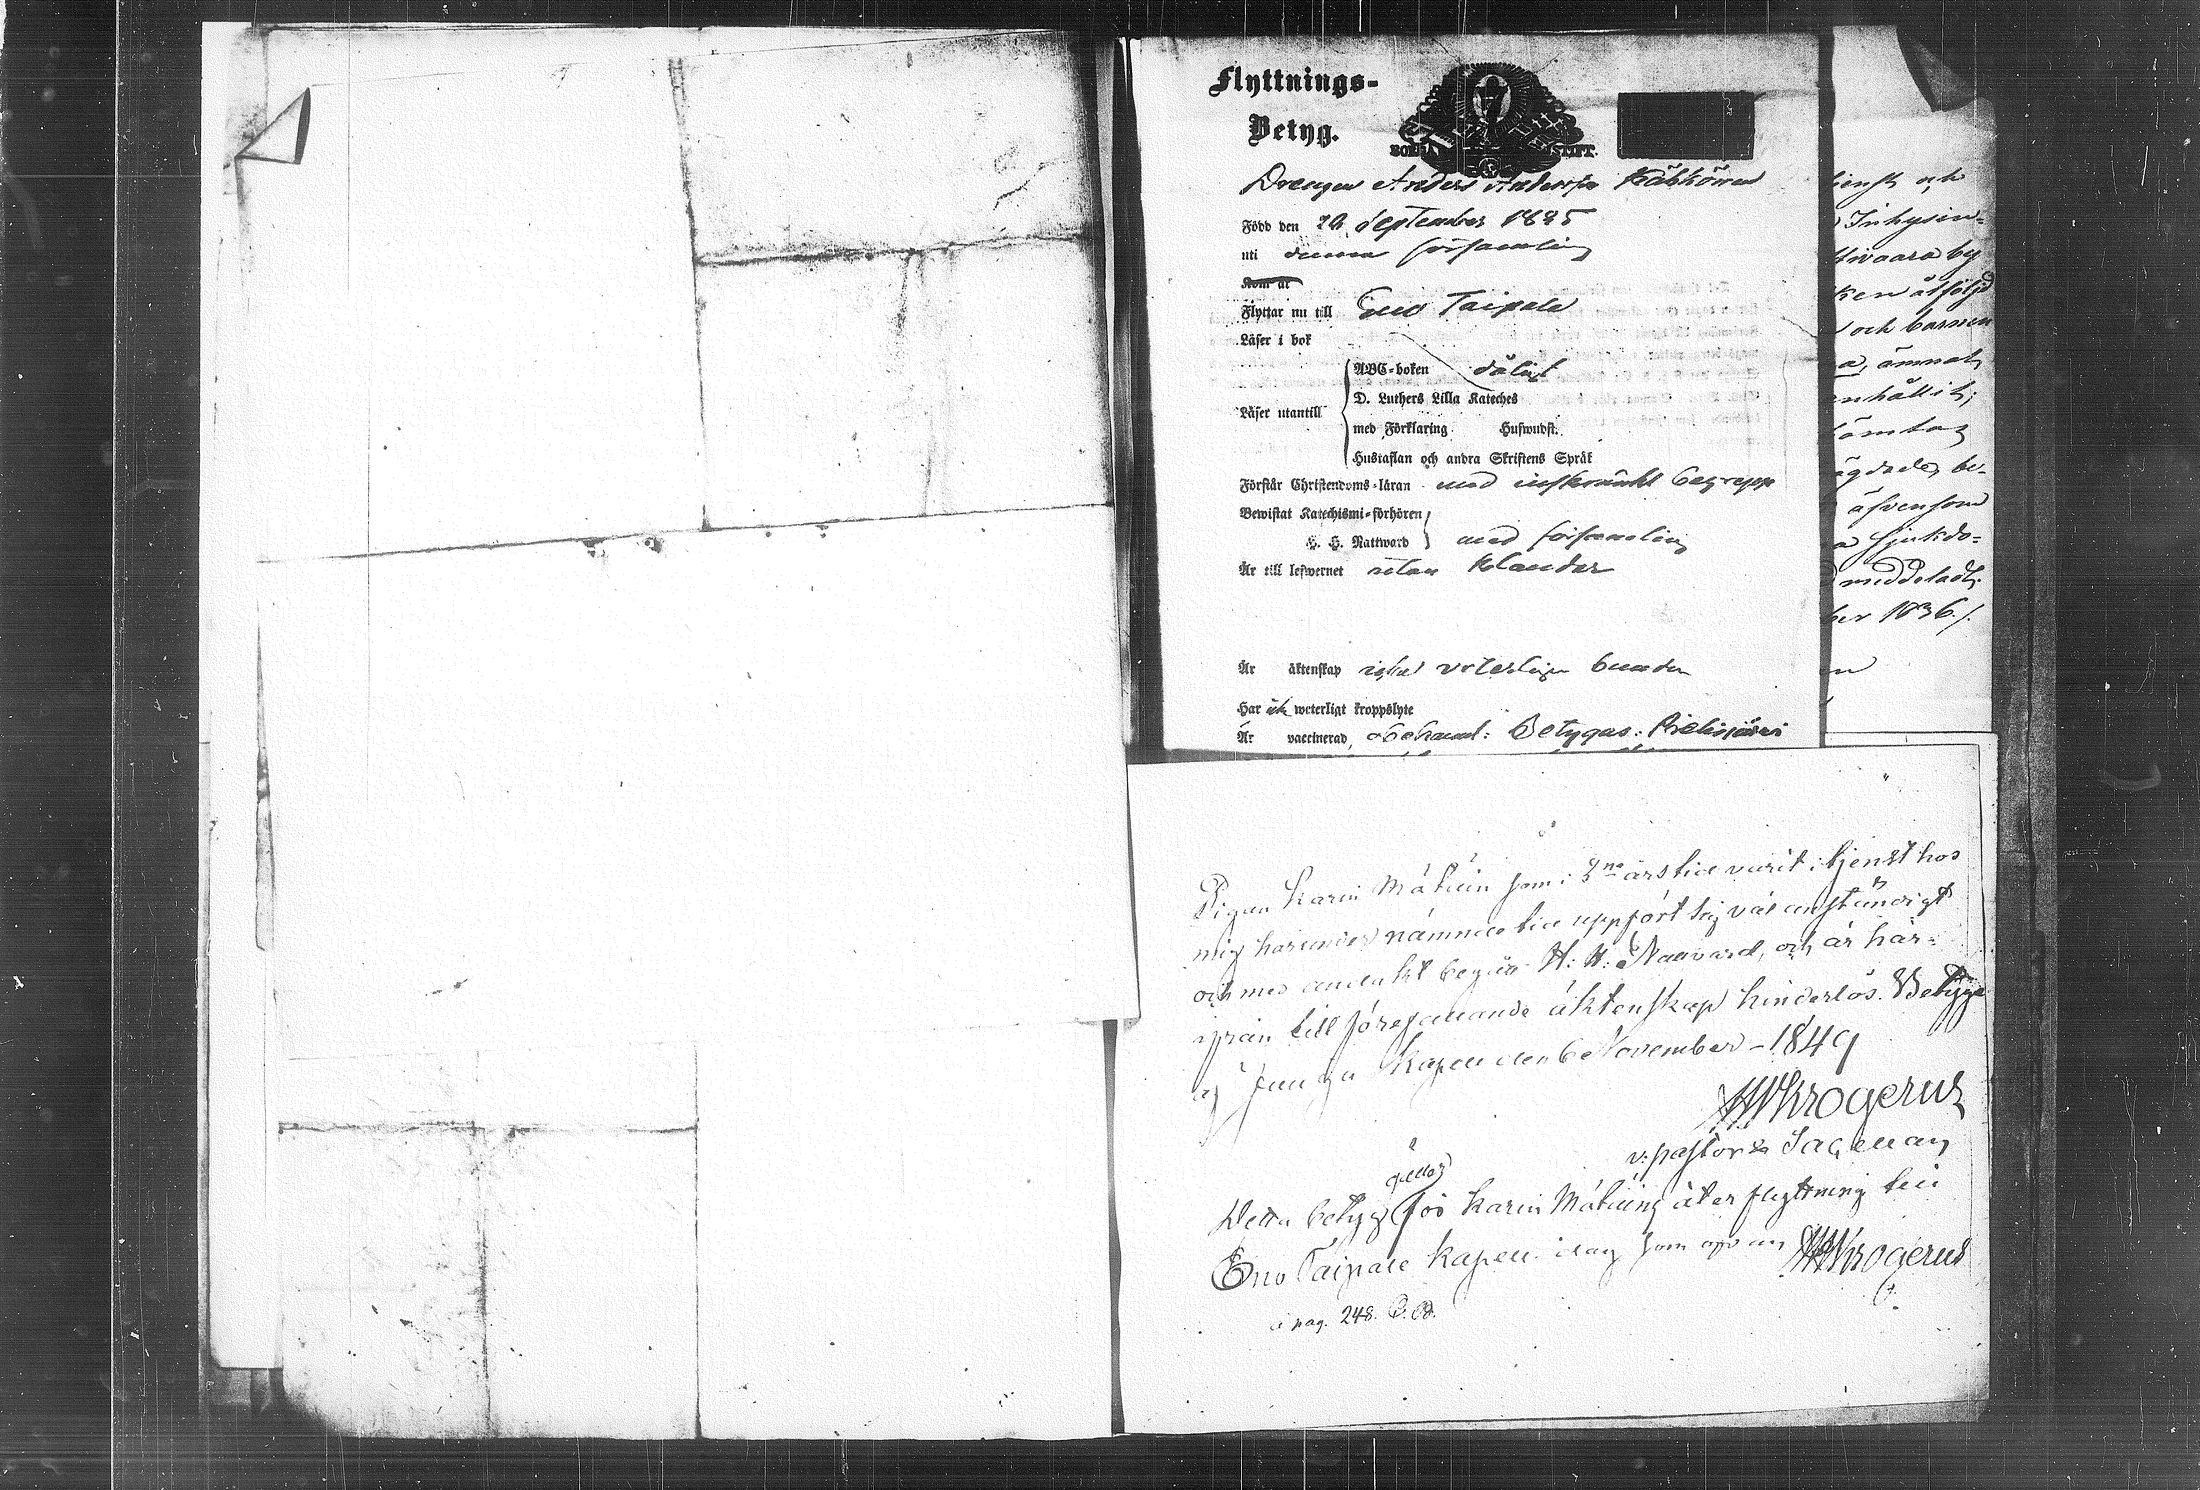 Flyttnings-
Betyg.
BORGÅ STIFT.
Drengen Anders Andersson Kähkönen
Född den 29 September 1825
uti denna församling
Kom åt
Flyttar nu till Eno Taipale
Läser i bok
Läser utantill
ABC-boken dåligt
D. Luthers Lilla Kateches
med Förklaring Hufwudst.
Hustaflan och andra Skriftens Språk
Förstår Christendoms-läran med inskränkt begrepp
Bewistat Katechismi-förhören
H. H. Nattward med församling
Är till lefwernet utan klander
Är äktenskap icke veterligen bunden
Har ick weterligt kroppslyte
Är vaccinerad, obehand: Betygas: Pielisjärvi
tienst och
Inhysin-
tivaara by
ken åtföljd
och barnen
a, ämnat
enhållit;
ägdade, be-
äfvensom
a sjukdo-
meddeladt.
ber 1836./.
en
Pigan Karin Mátuin som i 3ne årstid varit i tjenst hos
mig har under námnde tid uppfört sig väl anständigt
och med andakt begått H: H: Nattvard, och är här-
ifrån till föregående äktenskap hinderlös. Betygar
af Juuga Kapell den 6 November - 1849
HWKrogerus
v: pastor & Sacellan,
Detta betyg gäller för Karin Mátuin åter flyttning till
Eno Taipale Kapell idag som ofvan HWKrogerus
pag. 248.